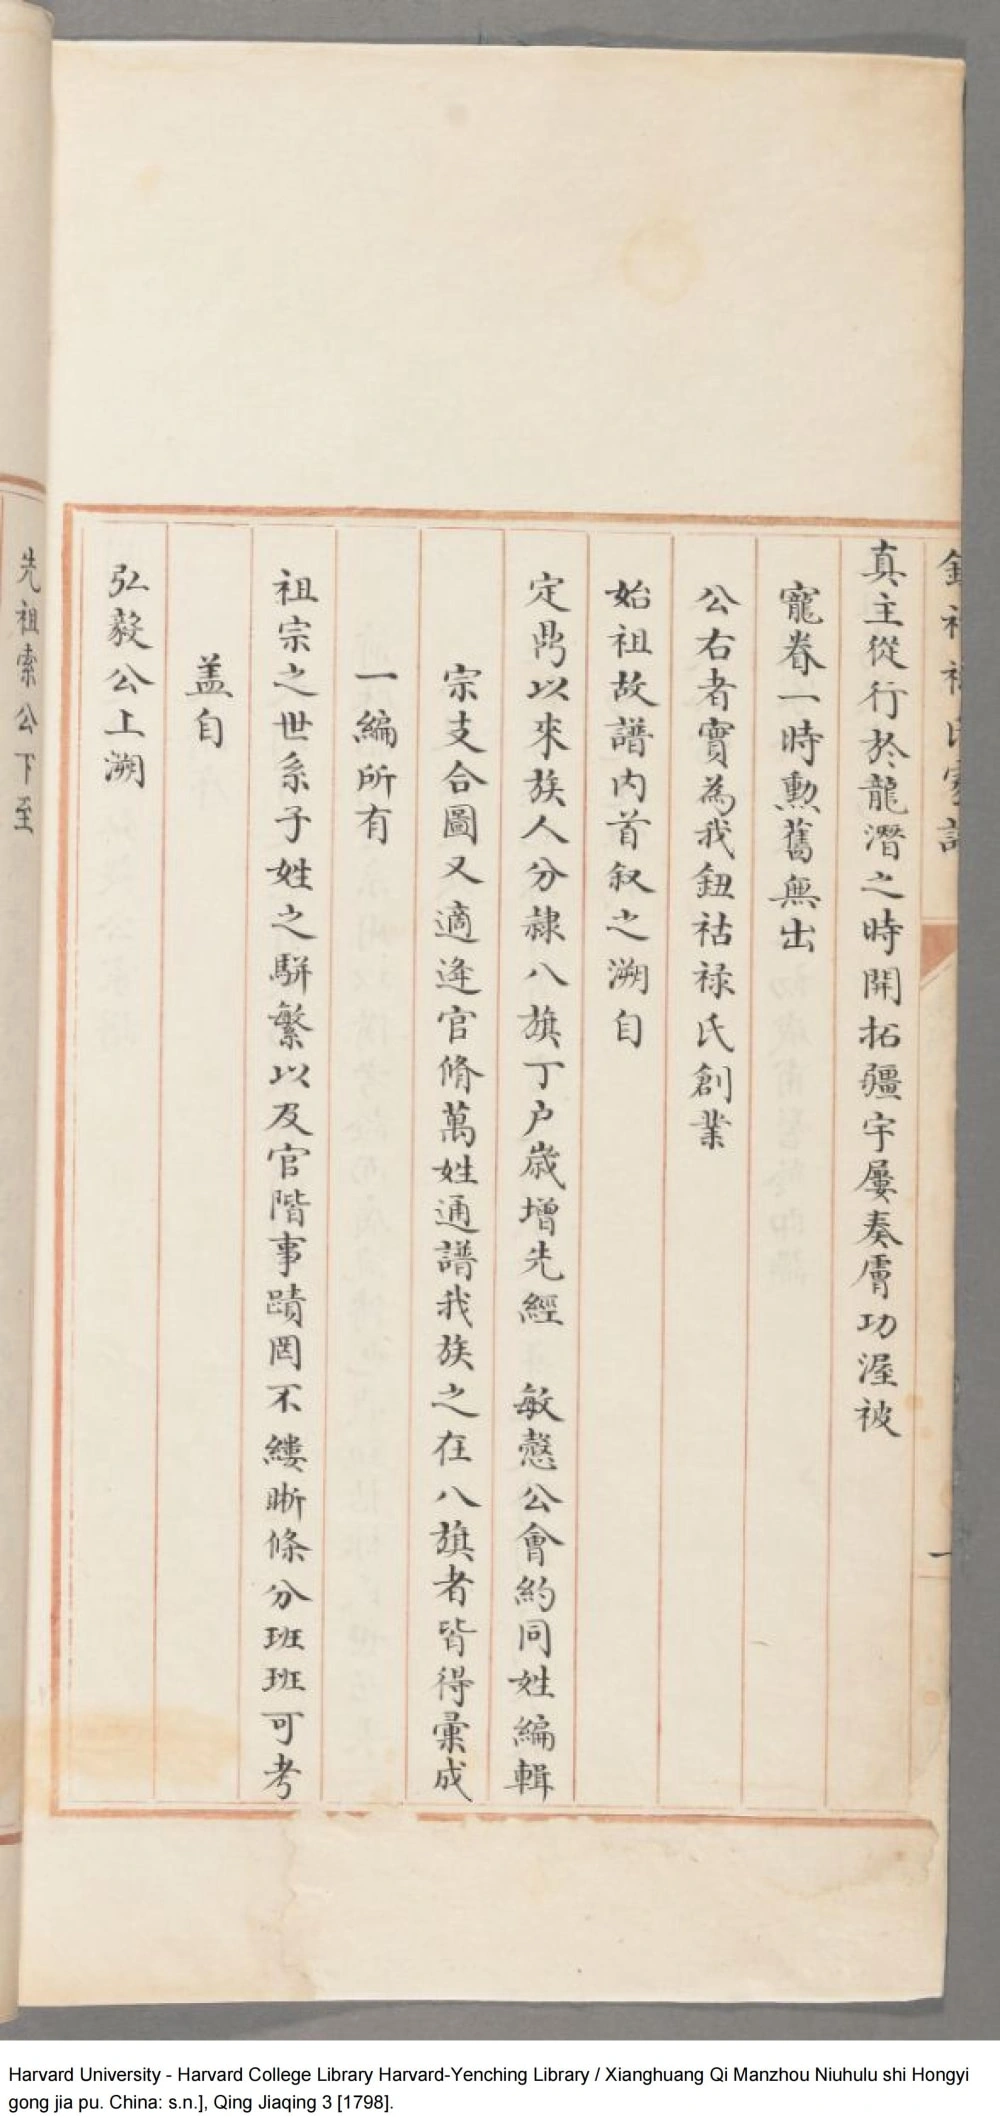 真主從行於龍潛之時開拓疆宇屢奏膚功渥被
寵眷一時勲舊無出
公右者實為我鈕祜禄氏創業
始祖故譜内首叙之溯自
定鼎以來族人分隸八旗丁户歲增先經 敏慤公會約同姓編輯
宗支合圖又適逢官脩萬姓通譜我族之在八旗者皆得彙成
一編所有
祖宗之世系子姓之駢繁以及官階事蹟罔不縷晰條分班班可考
盖自
弘毅公上溯
先祖索公下至
Harvard University - Harvard College Library Harvard-Yenching Library / Xianghuang Qi Manzhou Niuhulu shi Hongyi
gong jia pu. China: s.n.], Qing Jiaqing 3 [1798].